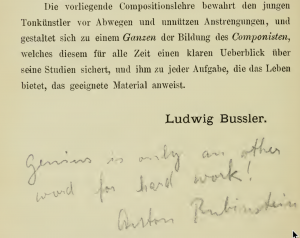 Die vorliegende Compositionslehre bewahrt den jungen
Tonkünstler vor Abwegen und unnützen Anstrengungen, und
gestaltet sich zu einem Ganzen der Bildung des Componisten,
welches diesem für alle Zeit einen klaren Ueberblick über
seine Studien sichert, und ihm zu jeder Aufgabe, die das Leben
bietet, das geeignete Material anweist.
Ludwig Bussler.
Genius is only an other
word for hard work!
Anton Rubinstein